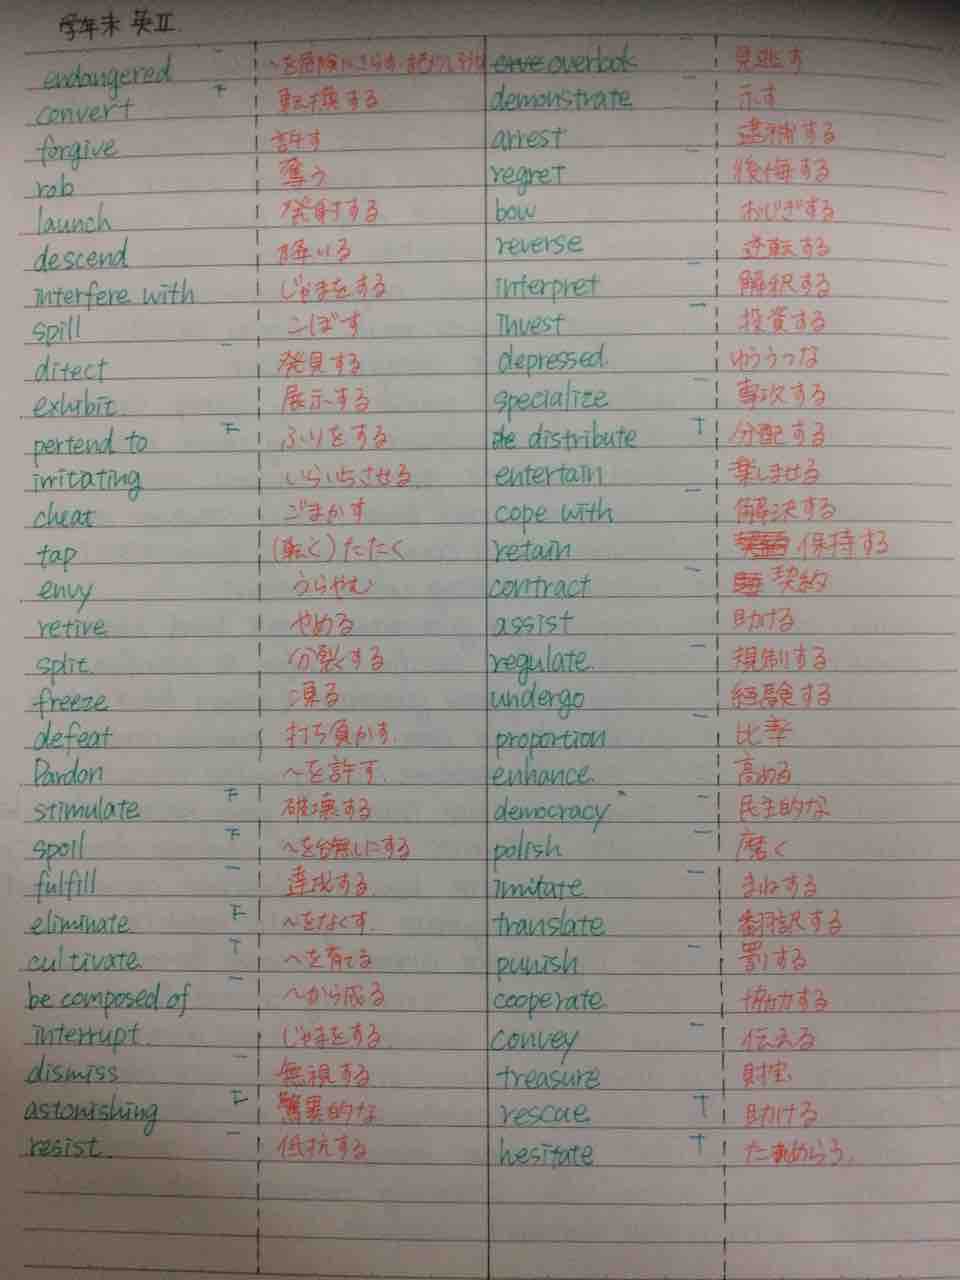 学年末 英Ⅱ
endangered ~を危険にさらす
convert 〒 転換する
forgive 許す
rob 奪う
launch 発射する
descend 降りる
interfere with じゃまをする
spill こぼす
ditect 発見する
exhibit 展示する
pertend to ふりをする
irritating いらいらさせる
cheat ごまかす
tap (軽く)たたく
envy うらやむ
retire やめる
split 分裂する
freeze 凍る
defeat 打ち負かす
Pardon ~を許す
stimulate 破壊する
spoil ~を台無しにする
fulfill 達成する
eliminate ~をなくす
cultivate ~を育てる
be composed of ~から成る
interrupt じゃまをする
dismiss 無視する
astonishing 驚異的な
resist 低抗する
overlook 見逃す
demonstrate 示す
arrest 逮捕する
regret 後悔する
bow おじぎする
reverse 逆転する
interpret 解釈する
invest 投資する
depressed ゆううつな
specialize 専攻する
distribute T 分配する
entertain 楽しませる
cope with 解決する
retain 保持する
contract 契約
assist 助ける
regulate 規制する
undergo 経験する
proportion 比率
enhance 高める
democracy 民主的な
polish 磨く
imitate まねする
translate 翻訳する
punish 罰する
cooperate 協力する
convey 伝える
treasure 財宝
rescue T 助ける
hesitate T ためらう